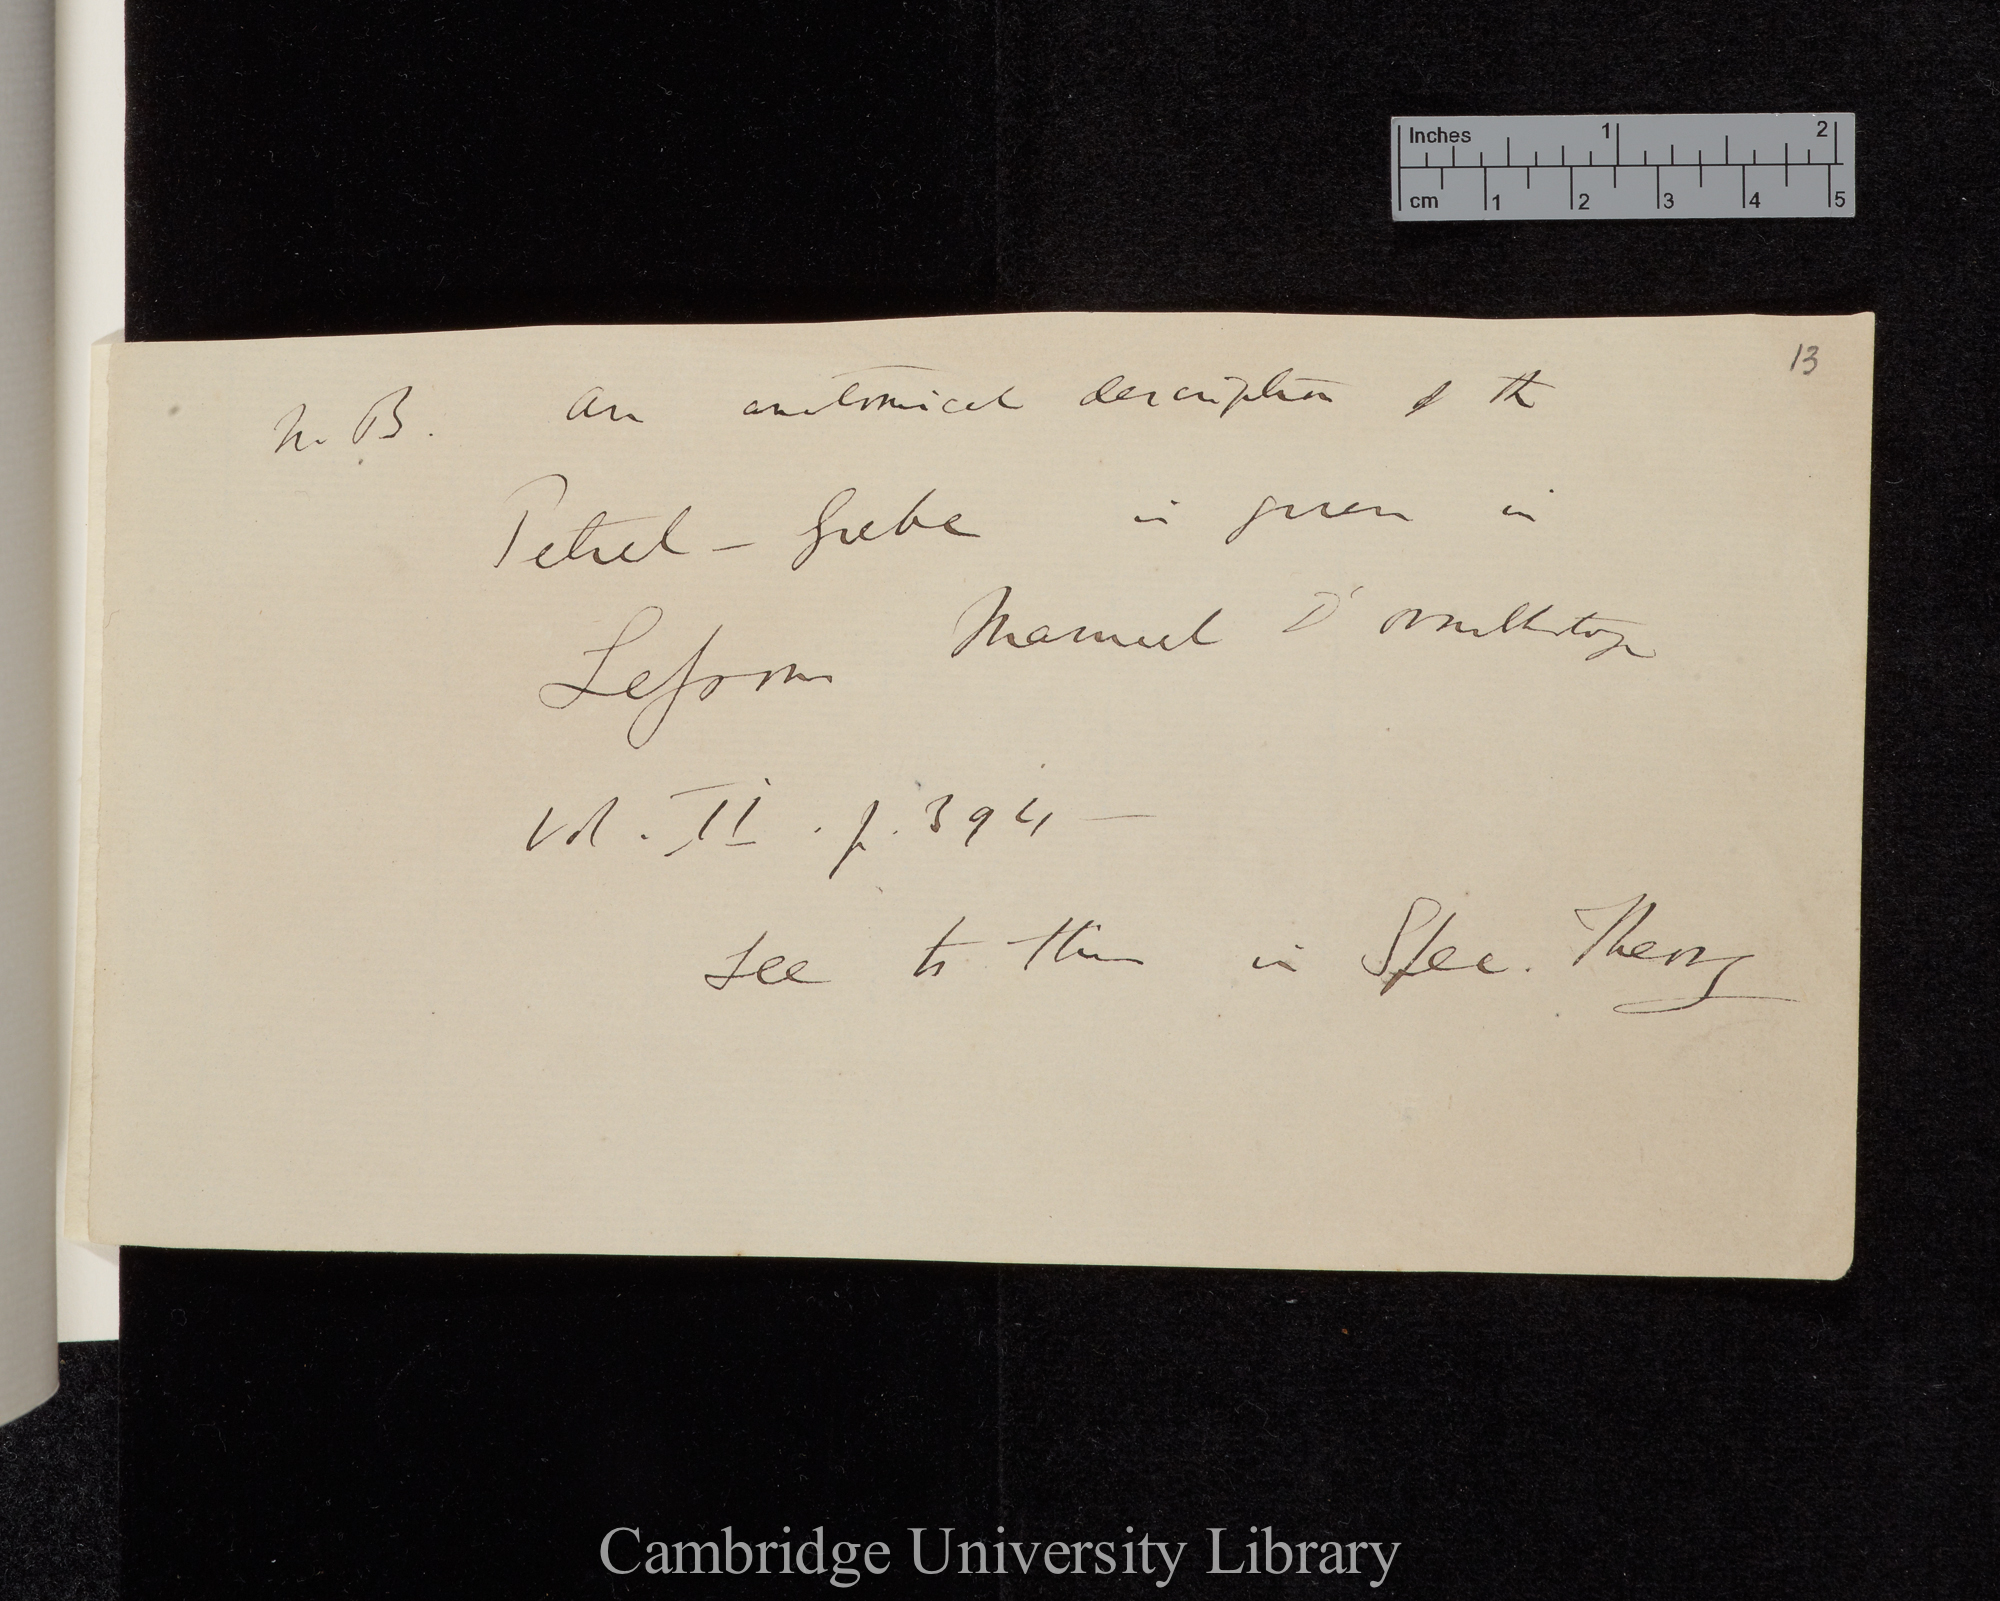 Inches 1 2
cm 1 2 3 4 5
13
N. B. An anatomical description of the
Petrel-Grebe is given in
Lesson Manuel D'ornithologie
Vol. II. p. 394 —
see to this in Spec. Theory
Cambridge University Library